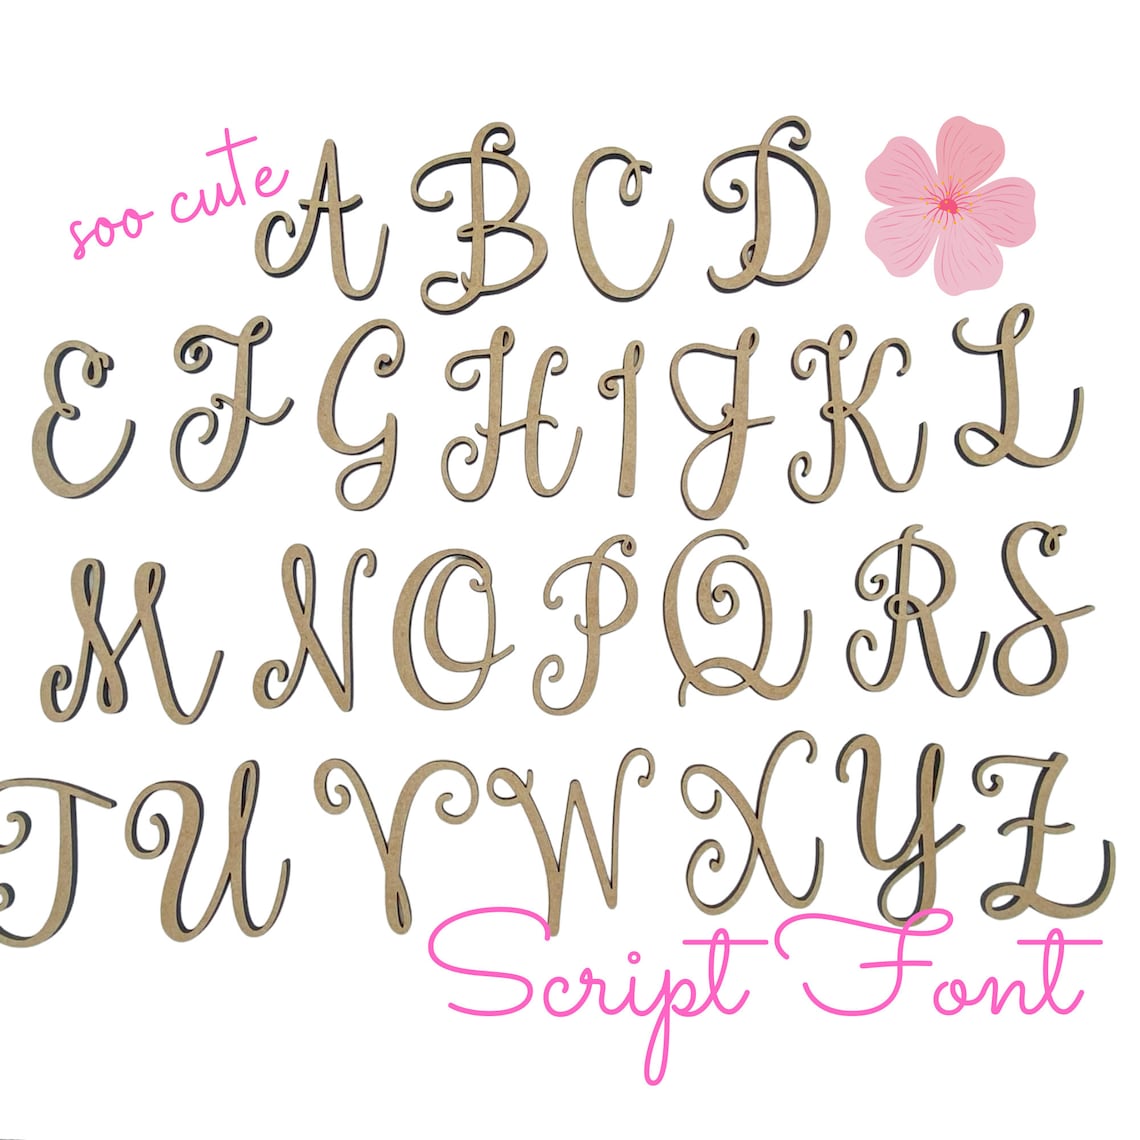 soo cute
A B C D
E F G H I J K L
M N O P Q R S
T U V W X Y Z
Script Font